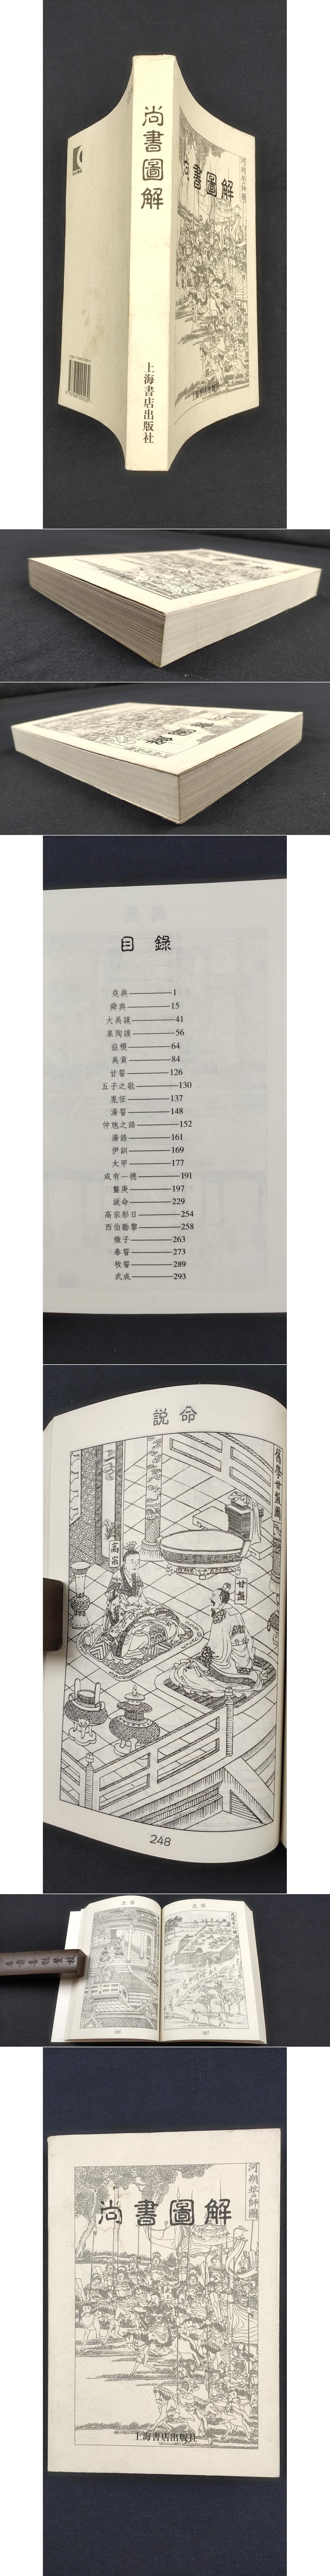 尚書圖解
上海書店出版社
河朔誓師圖
書圖解
目錄
堯典——1
舜典——15
大禹謨——41
皋陶謨——56
益稷——64
禹貢——84
甘誓——126
五子之歌——130
胤征——137
湯誓——148
仲虺之誥——152
湯誥——161
伊訓——169
太甲——177
咸有一德——191
盤庚——197
說命——229
高宗肜日——254
西伯勘黎——258
微子——263
泰誓——273
牧誓——289
武成——293
説命
舊學甘盤圖
高宗
甘盤
248
河朔誓師圖
尚書圖解
上海書店出版社